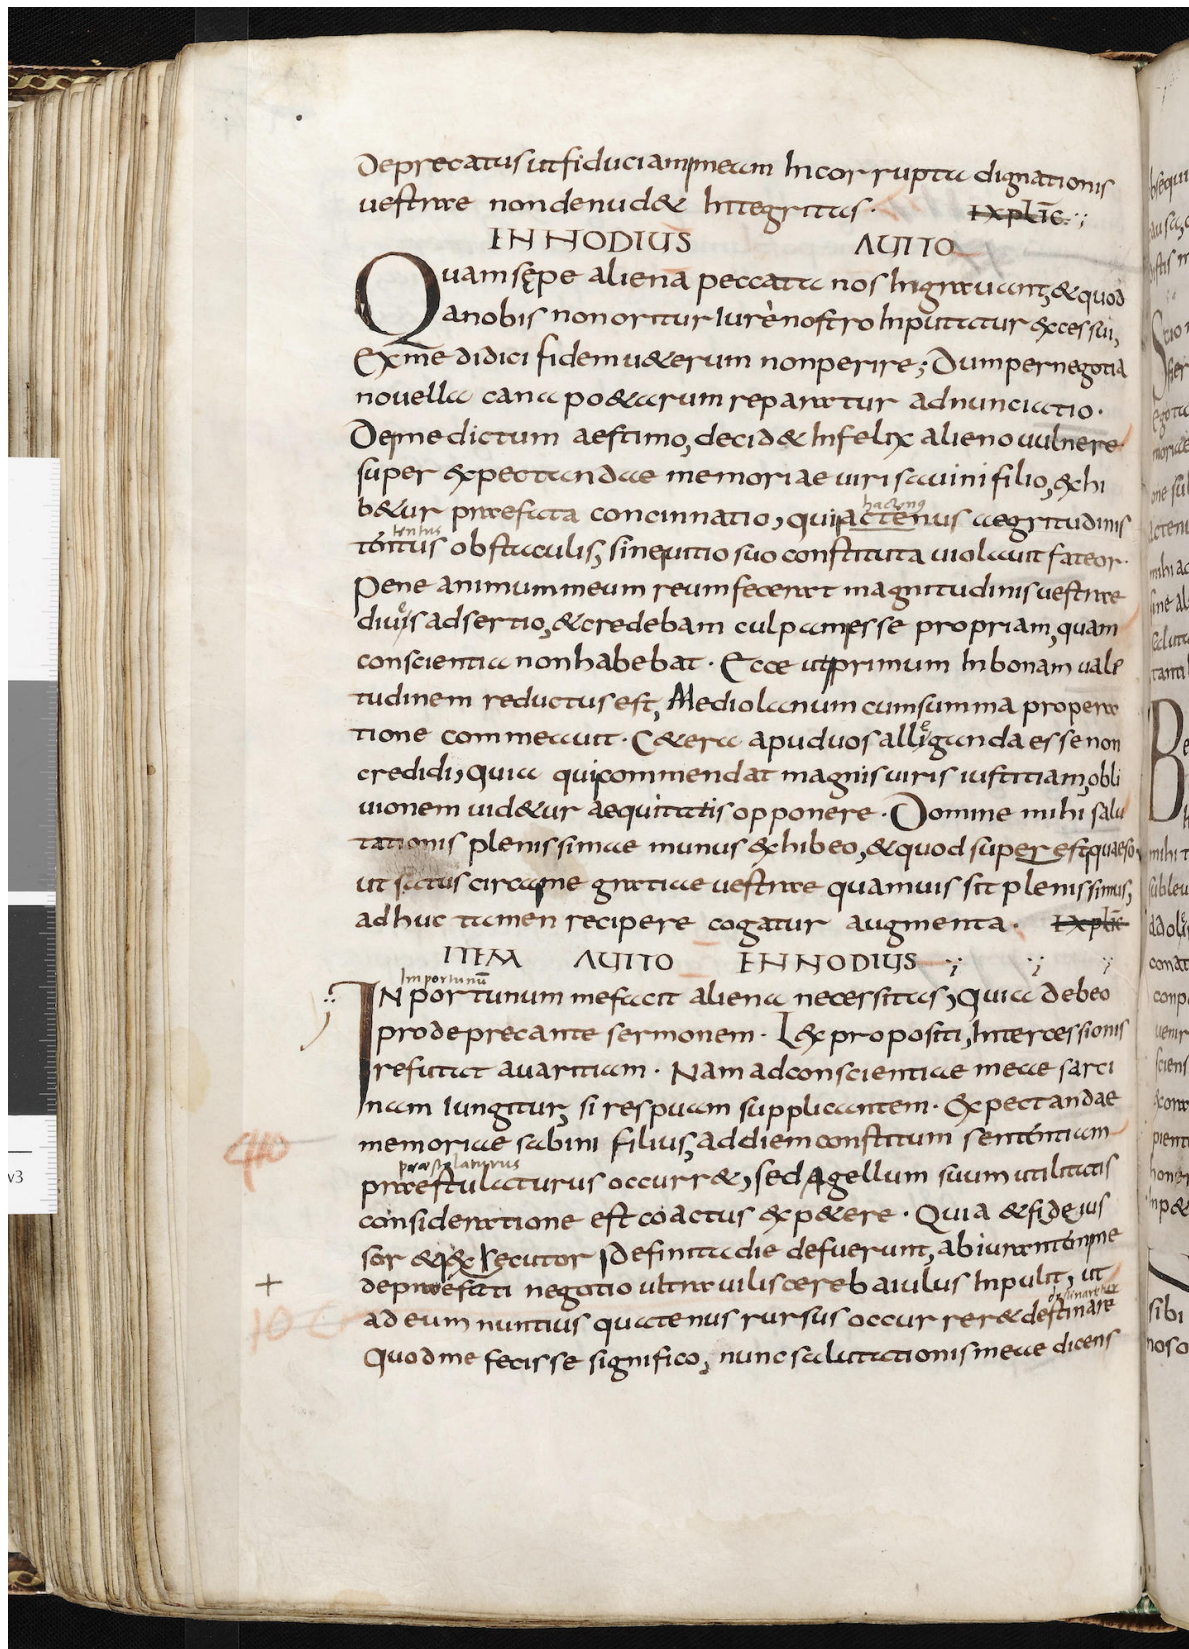 Deprecatus ut fiduciam meam Incorrupta dignationis
uestrae nondenud& Integritas. Explic̄
ENNODIUS AUITO
Quamsępe aliena peccata nos Ingrauant, & quod
anobis nonoritur Iurè nostro Inputatur excessui,
Exme didici fidem u&erum nonperire; Dum per negotia
nouella cana po&arum reparatur adnunciatio.
Deme dictum aestimo, decid& Infelix alieno uulnere
super expectandae memoriae uiri sauini filio, exhi
b&ur praefata concinnatio, qui actenus aegritudinis
hactenus
tentus obstaculis, sine uitio suo constituta uiolauit fateor.
tentus
Pene animum meum reum fecerat magnitudinis uestrae
diuęs adsertio, & credebam culpam esse propriam, quam
conscientia nonhabebat. Ecce ut primum Inbonam uale
tudinem reductus est, Mediolanum cum summa propera
tione commeauit. C&era apuduos allęganda esse non
credidi, Quia qui commendat magnis uiris iustitiam, obli
uionem uid&ur aequitatis opponere. Domine mihi salu
tationis plenissimae munus exhibeo, & quod super est quaeso
ut status circa me gratiae uestrae quamuis sit plenissimus,
adhuc tamen recipere cogatur augmenta. Explic̄
ITEM AUITO ENNODIUS
Importunū
INportunum mefacit aliena necessitas, Quia debeo
prodeprecante sermonem. Lex propositi, Intercessionis
refutat auaritiam. Nam adconscientiae meae sarci
nam Iungitur, si respuam supplicantem. Expectandae
memoriae sabini filius, addiem constitum sententiam
praestolaturus
praestulaturus occurr&, sed Agellum suum utilitatis
consideratione est coactus exp&ere. Quia & fideius
sor & exsecutor Definita die defuerunt, abiurantem me
de praefati negotio ultra uilisceret baiulus Inpulit, ut
ad eum nuntius quatenus rursus occurrer& destinare
Quodme fecisse significo, nunc salutationis meae dicens